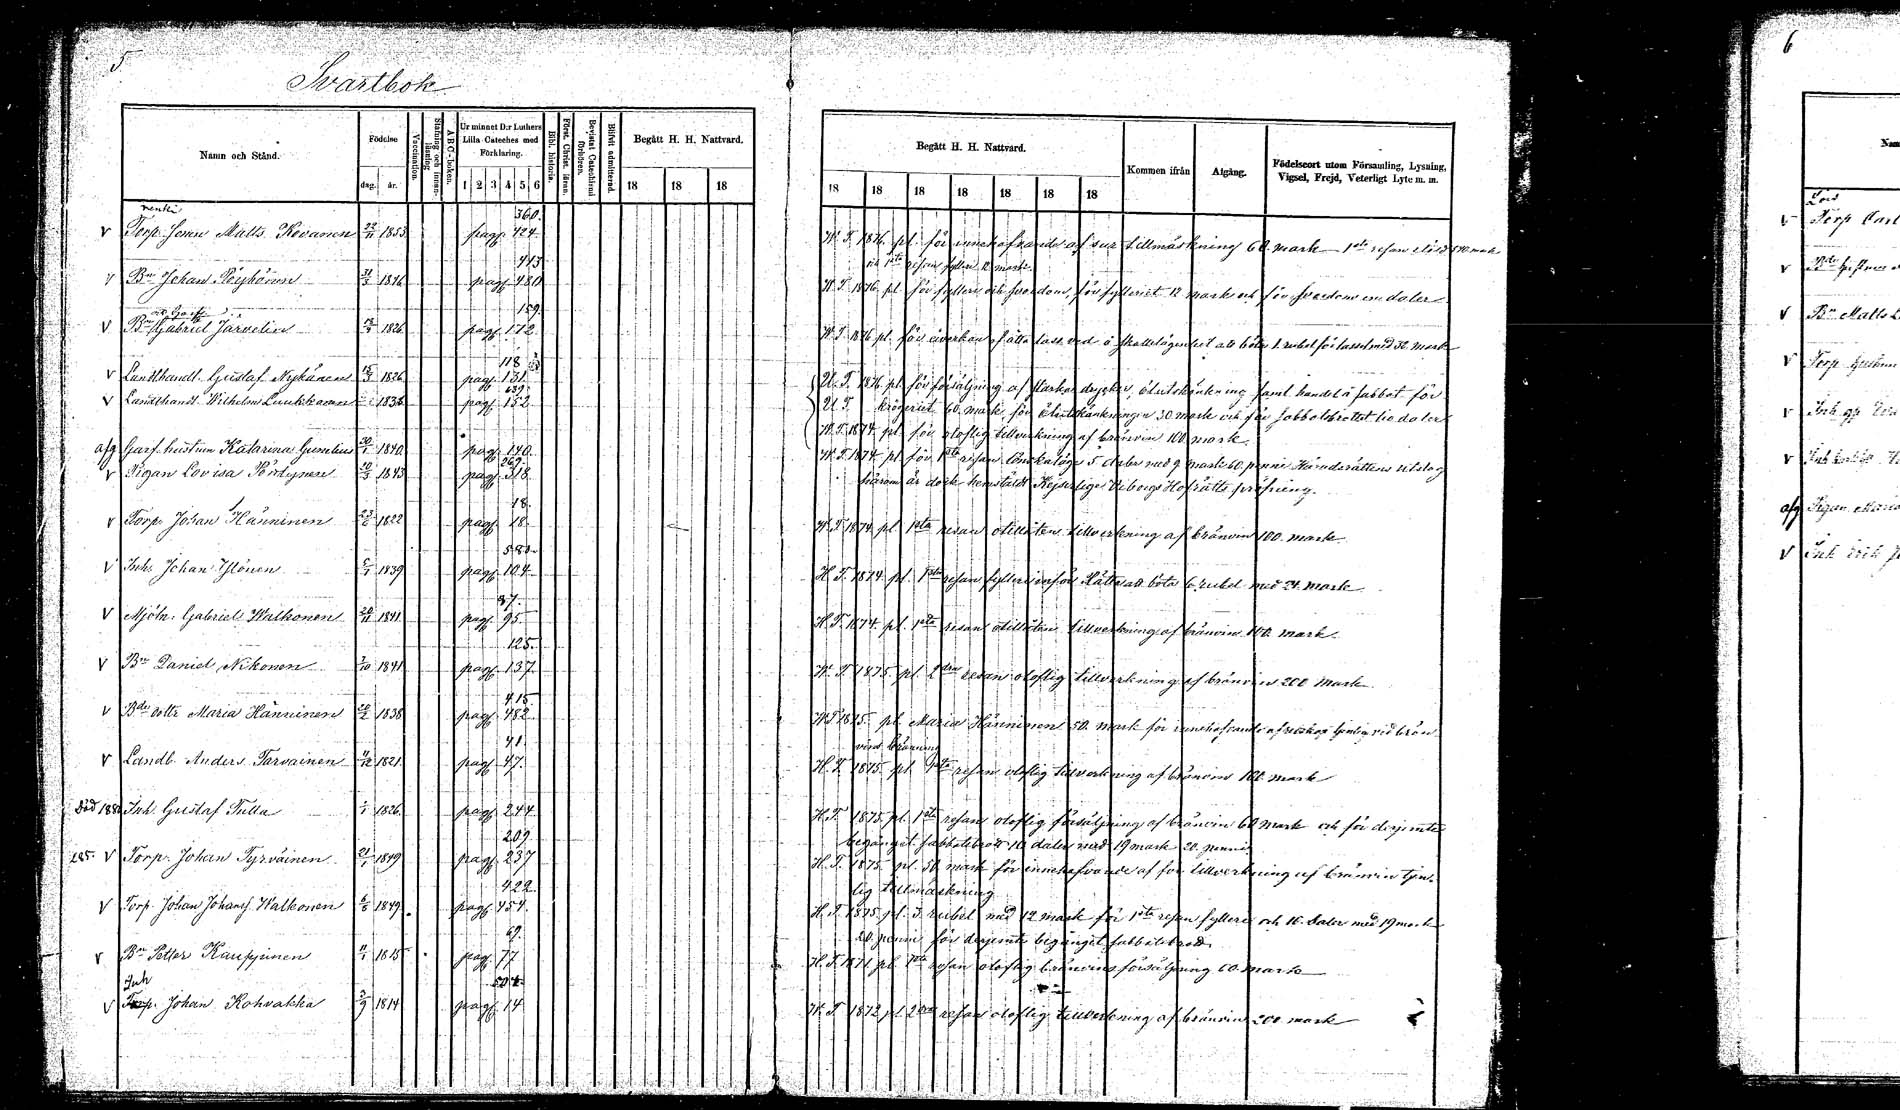 5
Svartbok
Namn och Stånd.
Födelse
dag. år.
Vaccination.
Stafning och innan-läsning
ABC-boken.
Ur minnet D:r Luthers Lilla Cateches med Förklaring.
1 2 3 4 5 6
Bibl. historia.
Först. Christ. läran.
Bevistat Catechismi förhören.
Blifvit admitterad
Begått H. H. Nattvard.
18 18 18
Begått H. H. Nattvard.
18 18 18 18 18 18 18
Kommen ifrån
Afgång.
Födelseort utom Församling, Lysning, Vigsel, Frejd, Veterligt Lyte m. m.
360.
v Torp. Matts Kovanen 22/11 1855 pag. 424. W. T. 1876. pl. för innehafvande af sur tillmäskning 60 mark 1sta resan
413 och 1sta resan fylleri 12 mark.
v Bn Johan Pöyhönen 31/3 1846 pag. 480 W. T. 1876. pl. för fylleri och svordom, för fylleriet 12 mark och för svordom en daler
159.
v Bn Gabriel Järvelin 1826 pag. 172 W. T. 1876 pl. för åverkan af åtta lass ved å att böta 1 rubel för lasset med 32 mark
118
v Landthandl. Gustaf Nykänen 1826 pag. 131. U. T. 1876 pl. för försäljning af starka drycker, ölutskänkning samt handel å sabbat för
639.
v Landthandl. Wilhelm Luukkonen 1838 pag. 152 U. T. krögeriet 60. mark för ölutskänkningen 30 mark och för sabbatsbrottet tio daler
W. T. 1874. pl. för oloflig tillverkning af bränvin 100 mark
afg Garf. hustrun Katarina Gumelius 20/1 1840. pag. 140. W. T. 1874 pl. för 1sta resan lönskaläge 5 daler med 9 mark 60. penni Häradsrättens utslag
267
v Pigan Lovisa Pöndynen 20/3 1843 pag. 318 härom är dock hemstäldt Kejserliga Viborgs Hofrätts pröfning.
18.
v Torp. Johan Hänninen 23/6 1822 pag. 18. W. T. 1874 pl. 1sta resan otillåten tillverkning af bränvin 100. mark
583.
v Inh. Johan Ylönen 1839 pag. 104 H. T. 1874. pl. 1sta resan fylleri inför Rätta att böta 6 rubel med 24. mark
87.
v Mjöln. Gabriel Walkonen 20/11 1841. pag. 95. H. T. 1874. pl. 1sta resan otillåten tillverkning af bränvin 100. mark.
125.
v Bn Daniel Nikonen 1/10 1841 pag. 137. W. T. 1875. pl. 2dra resan oloflig tillverkning af bränvin 200 mark
415.
v Bde dottr Maria Hänninen 20/2 1838 pag. 482 W. T. 1875. pl. Maria Hänninen 50. mark för innehafvande af redskap tjenlig vid brän
41. vins bränning
v Landb. Anders Tarvainen 11/12 1821. pag. 47. H. T. 1875. pl. 1sta resan oloflig tillverkning af bränvin 100. mark
Död 188 Inh. Gustaf Tulla 1/1 1826. pag. 244 H. T. 1875. pl. 1sta resan oloflig försäljning af bränvin 60 mark och för derjemte
209. begånget sabbatsbrott 10 daler med 19 mark 20. penni
185. v Torp. Johan Tyrväinen 1849 pag. 237 H. T. 1875. pl. 50 mark för innehafvande af för tillverkning af bränvin tjen-
422. lig tillmäskning
v Torp. Johan Johans. Walkonen 6/6 1849. pag. 454. H. T. 1875. pl. 3. rubel med 12 mark för 1sta resan fylleri och 10. daler med 19 mark
69. 20. penni för derjemte begånget sabbatsbrott
v Bn Petter Kauppinen 11/1 1815 pag. 77 H. T. 1871 pl. 1sta resan oloflig bränvins försäljning 60. mark
Inh 504
v Torp. Johan Kohvakka 2/9 1814 pag. 14 W. T. 1872 pl. 2dra resan oloflig tillverkning af bränvin 200 mark
6
Nam
v Torp Carl
v
v Bn Matts L
v Torp. Gustaf
v Inh.
v Inh.
afg Pigan Maria
v Inh Erik